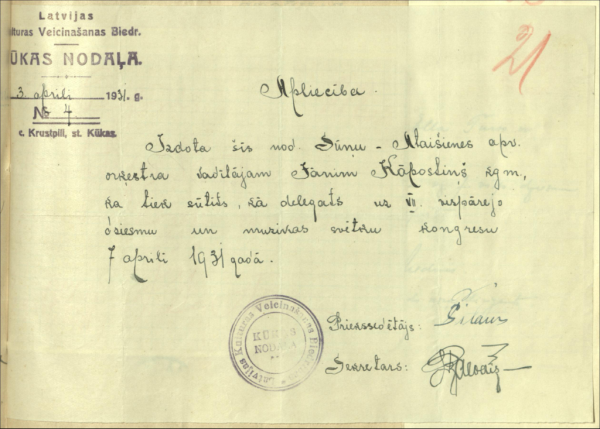 Latvijas
lturas Veicinašanas Biedr.
ŪKAS NODAĻA.
3 aprīlī 1931. g.
№ 4
c. Krustpilī, st. Kūkas.
21
Apliecība.
Izdota šīs nod. Sūņu - Ataišienes apv.
orķestra vadītājam Jānim Kāpostiņš kgm,
ka tiek sūtīts, kā delegats uz VII. vispārejo
dziesmu un muzikas svētku kongresu
7 aprīlī 1931 gadā.
Latvijas Kulturas Veicinašanas Biedr.
KŪKAS
NODAĻA
Priekssēdētājs:
Sekretars: